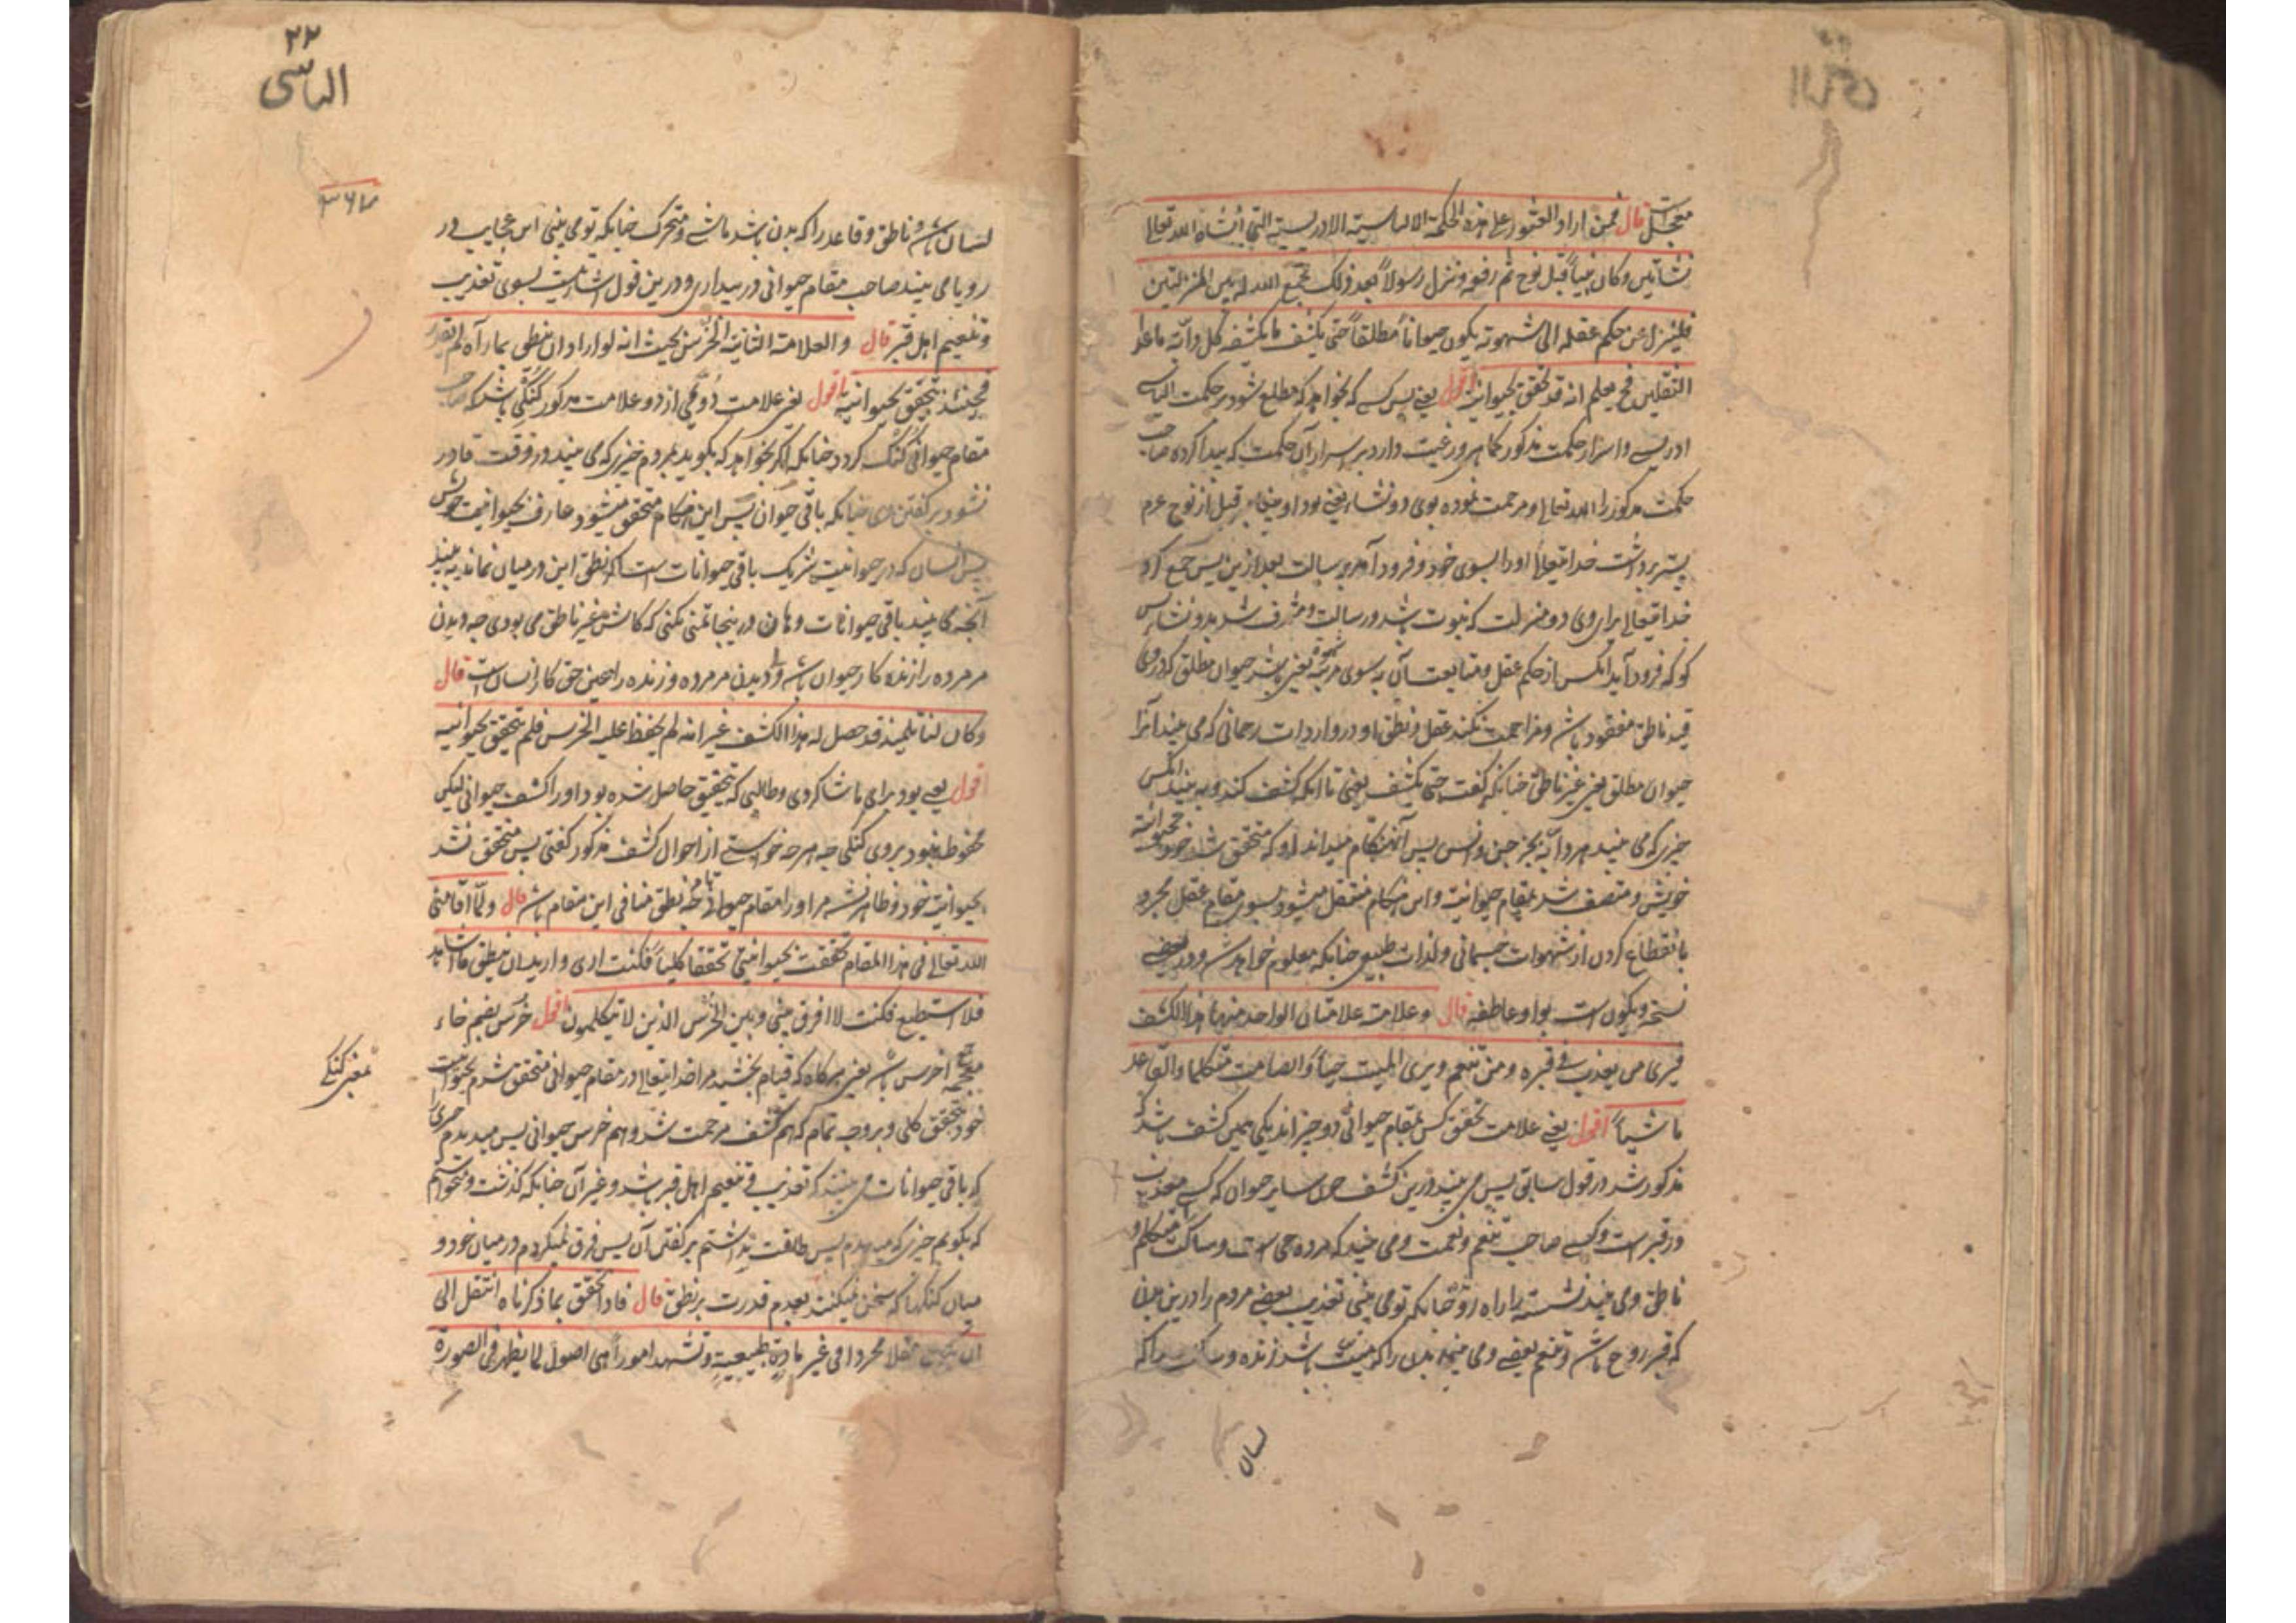 معجل است قال فمن اراد العثور على هذه الحكمة الالياسية الادريسية التي أنشأه الله تعالى
نشأتين وكان نبياً قبل نوح ثم رفع ونزل رسولاً بعد ذلك فجمع الله له بين المنزلتين
فلينزل عن حكم عقله الى شهوته ويكون حيواناً مطلقاً حتى يكشف ما يكشفه كل دابّة ما عدا
الثقلين فح يعلم انه قد تحقق بحيوانيته اقول یعنی پس کسے که بخواهد که مطلع شود بر حکمت الیاسے
ادریسے واسرار حکمت مذکور كما هي ورغبت دارد بر اسرار آن حکمت که پیدا کرده صاحب
حکمت مذکور را الله تعالی ومرحمت نموده بوی دو نشاء یعنی بود او پیغامبر قبل از نوح عرم
پستر برداشت خدایتعالی او را بسوی خود و فرود آمد برسالت بعد ازین پس جمع کرد
خدایتعالی برای وی دو منزلت که نبوت باشد ورسالت ومشرف شد بدو نشاء پس
کو که فرود آید انکس از حکم عقل ومتابعت آن به سوی مرتبۂ یعنی باشد حیوان مطلق که در وی
قید ناطق مفقود باشد ومزاحمت نکند عقل ونطق او در واردات رحمانی که می بیند آنرا
حیوان مطلق یعنی غیر ناطق چنانکه گفت حتی یکشف یعنی تا آنکه کشف کند وبه بیند انکس
چیزی که می بیند هر دابّه بجز جن وانس پس آنهنکام میداند او که متحقق شد خود بحیوانیته
خویش ومتصف شد بمقام حیوانیته واین هنکام منتقل میشود بسوی مقام عقل مجرد
بانقطاع کردن از شهوات جسمانی ولذات طبیعی چنانکه معلوم خواهد شد ودر بعضے
نسخه ویکون است بواو عاطفه قال وعلامته علامتان الواحدة منهما هذا الكشف
فيرى من يعذب في قبره ومن ينعم ويرى الميت حياً والصامت متكلما والقاعد
ماشياً اقول یعنی علامت تحقق کس بمقام حیوانی دو چیز اند یکی همین کشف باشد که
مذکور شد در قول سابق پس می بیند درین کشف چون سایر حیوان که کسے معذب
در قبر است وکسے صاحب تنعم ونعمت ومی بیند که مرده حی است وساکت متکلم و
ناطق ومی بیند نشسته را راه رو چنانکه تو می بینی تعذیب بعضے مردم را درین بدن
که قبر روح باشد وتنعم بعضے ومی بیند بدن را که میت باشد زنده وساکت را که
لسان
۲۲
الیاسی
۳۶۷
لسان باشد ناطق وقاعد را که بدن باشد ماشے ومتحرک چنانکه تو می بینی این عجایب در
رویا می بیند صاحب مقام حیوانی در بیداری ودرین قول اشارتیست بسوی تعذیب
وتنعیم اهل قبر قال والعلامة الثانية الخرس بحيث انه لو اراد ان ينطق بما رآه لم يقدر
فحينئذ يتحقق بحيوانيته اقول یعنی علامت دُوُمی از دو علامت مذکور گُنگی باشد که صاحب
مقام حیوانی گُنگ کردد چنانکه اگر بخواهد که بگوید بمردم چیزی که می بیند در وقت قادر
نشود بر گفتن وی چنانکه باقی حیوان پس این هنکام متحقق میشود عارف بحیوانیت خویش
پس انسان که در حیوانیت شریک باقی حیوانات است اگر نطق این درمیان نماند به بیند
آنچه می بیند باقی حیوانات وهان درینجا تمنی نکنی که کاش غیر ناطق می بودی چه دیدن
مر مرده را زنده کار حیوان باشد ودیدن مر مرده وزنده را بعین حق کار انسان است قال
وكان لنا تلميذ قد حصل له هذا الكشف غير انه لم يحفظ عليه الخرس فلم يتحقق بحيوانيته
اقول یعنی بود برای ما شاکردی وطالبی که بتحقیق حاصل شده بود او را کشف حیوانی لیکن
محفوظ نبود بروی گنگی چه هر چه خواستے از احوال کشف مذکور گفتی پس متحقق نشد
بحیوانیت خود وظاهر نشد مر او را مقام حیوانی چه نطق منافی این مقام باشد قال ولمّا اقامنی
الله تعالى في هذا المقام تحققت بحيوانيتي تحققا كلياً فكنت ارى واريد ان انطق بما اشاهد
فلا استطيع فكنت لا افرق بيني وبين الخرس الذين لا يتكلمون اقول خرس بضم خاء
معجمه جمع اخرس باشد یعنی هرگاه که قیام بخشید مرا خدایتعالی در مقام حیوانی متحقق شدم بحیوانیت
بمعنی گنگی
خود بتحقق کلی وبروجه تمام که هم کشف مرحمت شد وهم خرس حیوانی پس میدیدم چیزی
که باقی حیوانات می بینند که تعذیب وتنعیم اهل قبر باشد وغیر آن چنانکه گذشت ومیخواستم
که بگویم چیزی که میدیدم پس طاقت نداشتم بر گفتن آن پس فرق نمیکردم درمیان خود و
میان گنگها که سخن نمیکنند بعدم قدرت بر نطق قال فاذا تحقق بما ذكرناه انتقل الى
ان يكون عقلا مجردا في غير مادة طبيعية وشهد اموراً هي اصول لما يظهر في الصورة